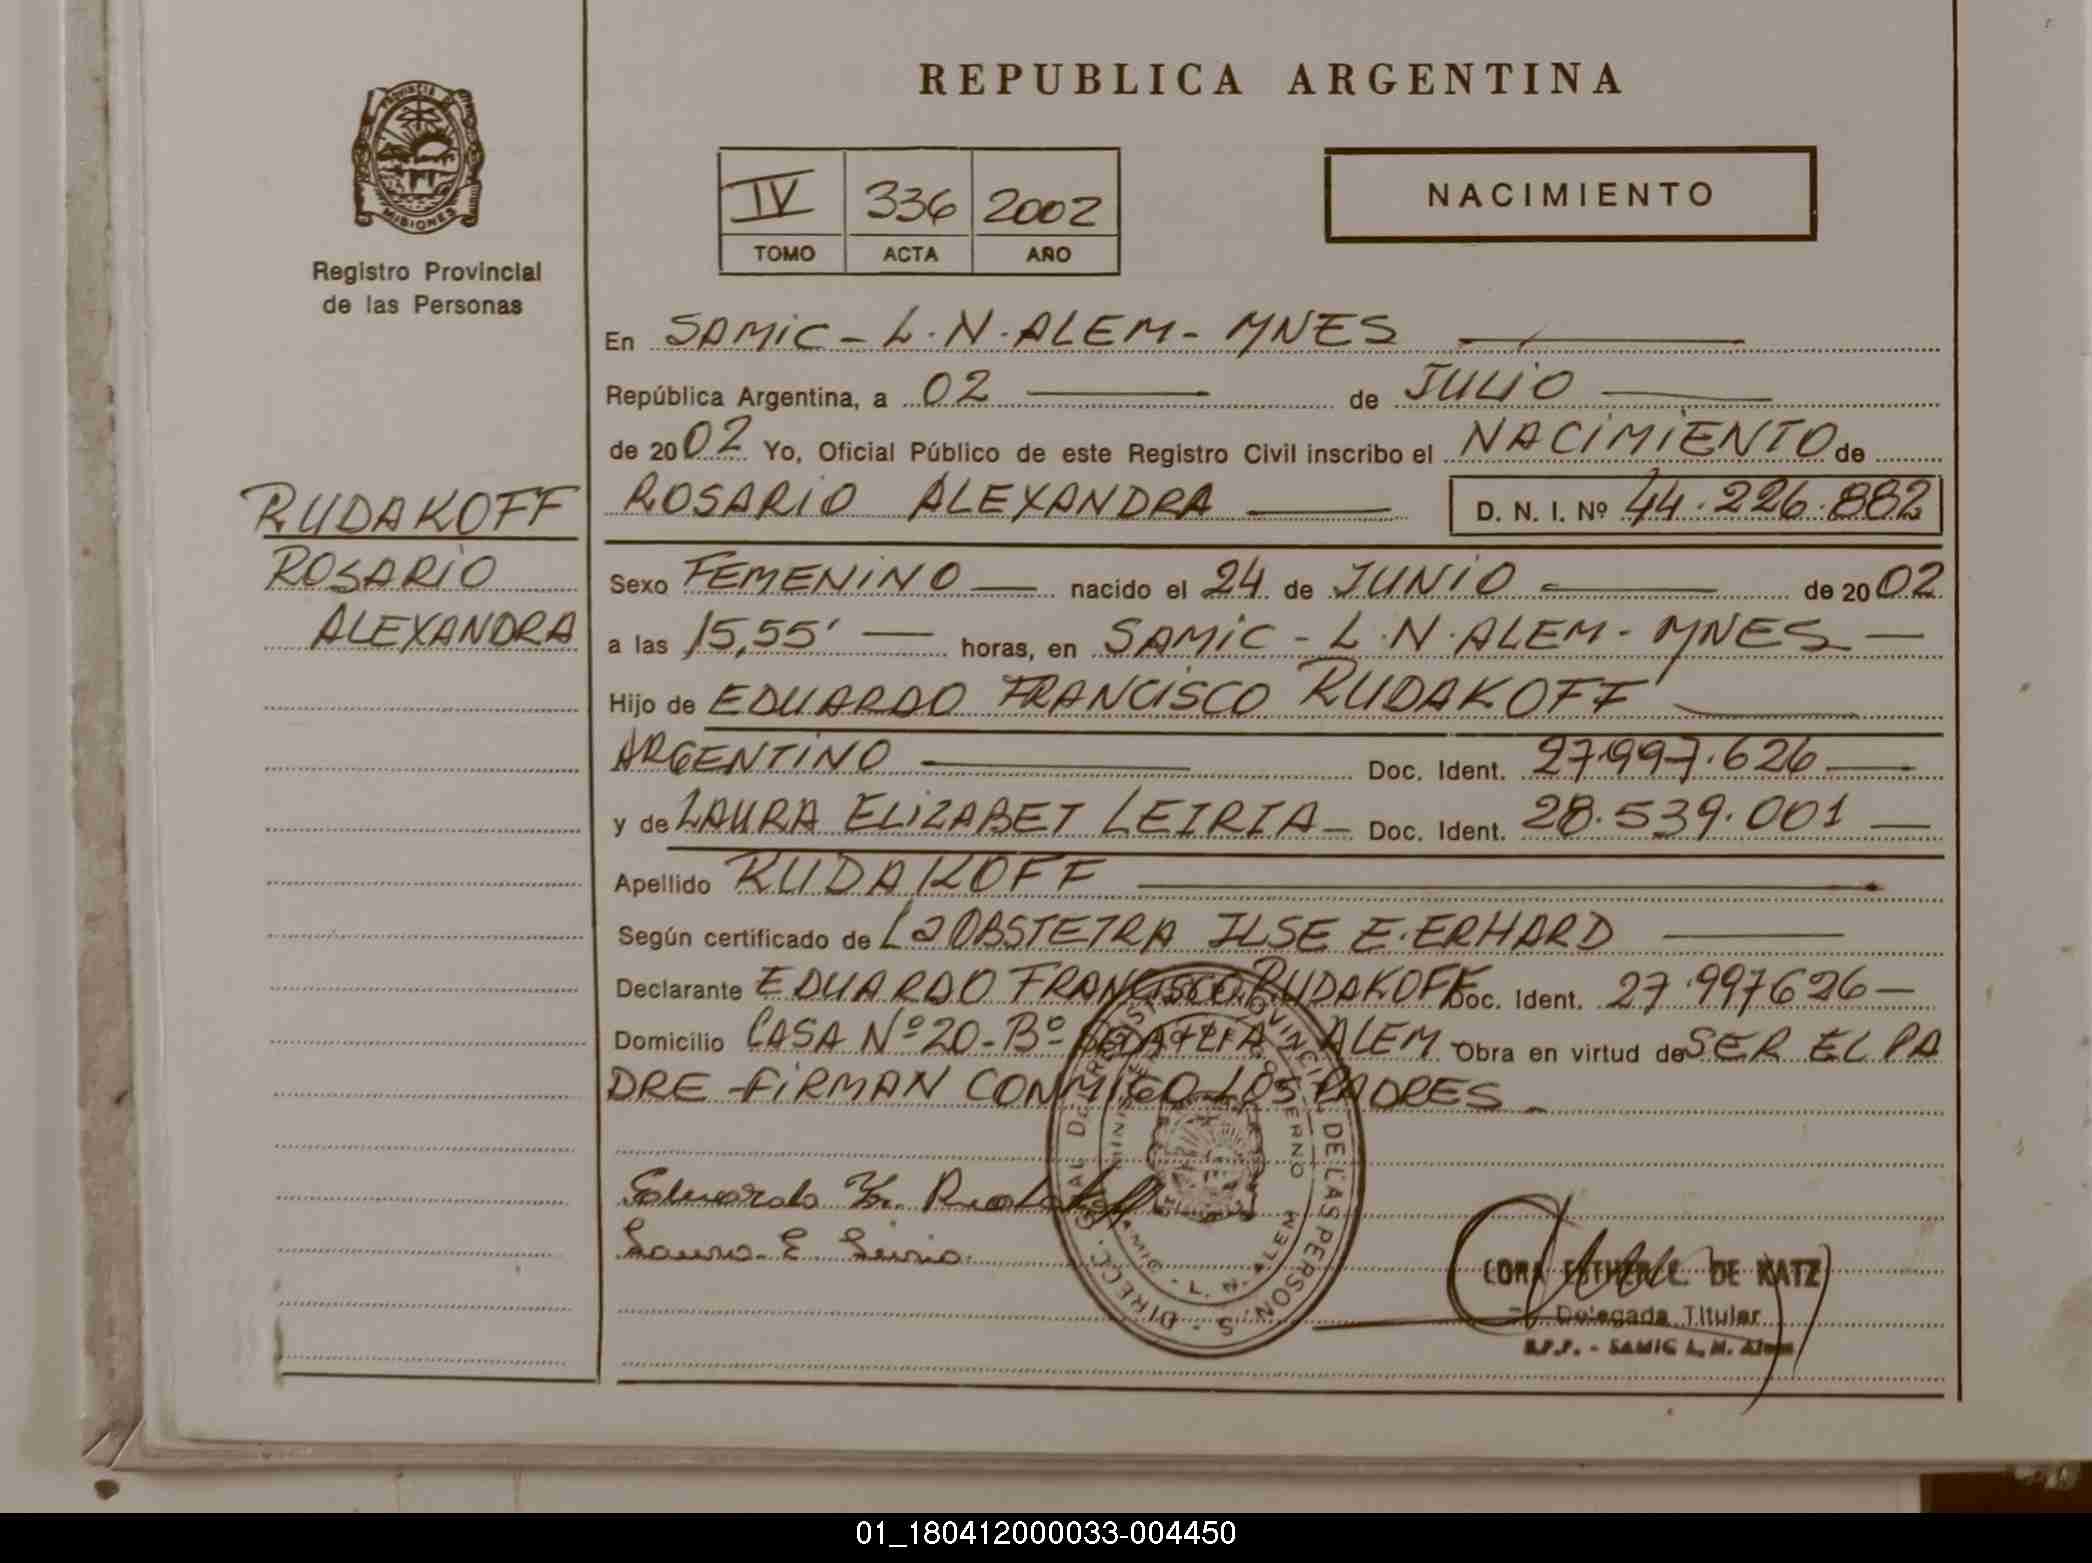 REPUBLICA ARGENTINA
PROVINCIA DE
MISIONES
Registro Provincial
de las Personas
IV 336 2002
TOMO ACTA AÑO
NACIMIENTO
En SAMIC - L.N. ALEM - MNES
República Argentina, a 02 de JULIO
de 2002 Yo, Oficial Público de este Registro Civil inscribo el NACIMIENTO de
RUDAKOFF
ROSARIO
ALEXANDRA
ROSARIO ALEXANDRA D. N. I. Nº 44.226.882
Sexo FEMENINO nacido el 24 de JUNIO de 2002
a las 15,55' horas, en SAMIC - L.N. ALEM - MNES
Hijo de EDUARDO FRANCISCO RUDAKOFF
ARGENTINO Doc. Ident. 27.997.626
y de LAURA ELIZABET LEIRIA - Doc. Ident. 28.539.001
Apellido RUDAKOFF
Según certificado de La OBSTETRA ILSE E. ERHARD
Declarante EDUARDO FRANCISCO RUDAKOFF Doc. Ident. 27.997626
Domicilio CASA Nº 20 - Bº ALEM Obra en virtud de SER EL PA
DRE - FIRMAN CONMIGO LOS PADRES
Eduardo Fr. Rudakoff
Laura E Leiria
DIRECC. GRAL DE REGISTRO PROVINCIAL DE LAS PERSONAS
GOBIERNO
SAMIC - L. N. ALEM
CORA ESTHER L. DE KATZ
Delegada Titular
R.P.P. - SAMIC L. N. Alem
01_180412000033-004450